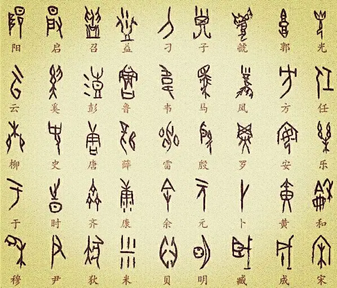 阳 启 召 益 刁 子 虢 郭 光
云 奚 彭 鲁 韦 马 凤 方 任
柳 史 唐 薛 雷 殷 罗 安 乐
于 时 齐 康 余 元 卜 黄 和
穆 尹 狄 米 贝 明 臧 成 宋